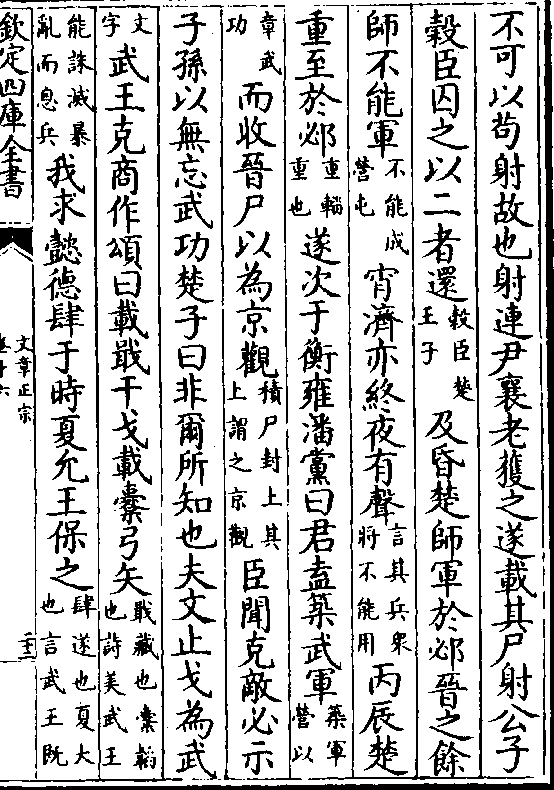 不可以苟射故也射連尹襄老獲之遂載其尸射公子
穀臣囚之以二者還穀臣楚王子及昏楚師軍於邲晉之餘
師不能軍不能成營屯宵濟亦終夜有聲言其兵衆將不能用丙辰楚
重至於邲重輜重也遂次于衡雍潘黨曰君盍築武軍築軍營以
章武功而收晉尸以為京觀積尸封土其上謂之京觀臣聞克敵必示
子孫以無忘武功楚子曰非爾所知也夫文止戈為武
文字武王克商作頌曰載戢干戈載櫜弓矢戢藏也櫜韜也詩美武王
能誅滅暴亂而息兵我求懿德肆于時夏允王保之肆遂也夏大也言武王旣
欽定四庫全書
文章正宗